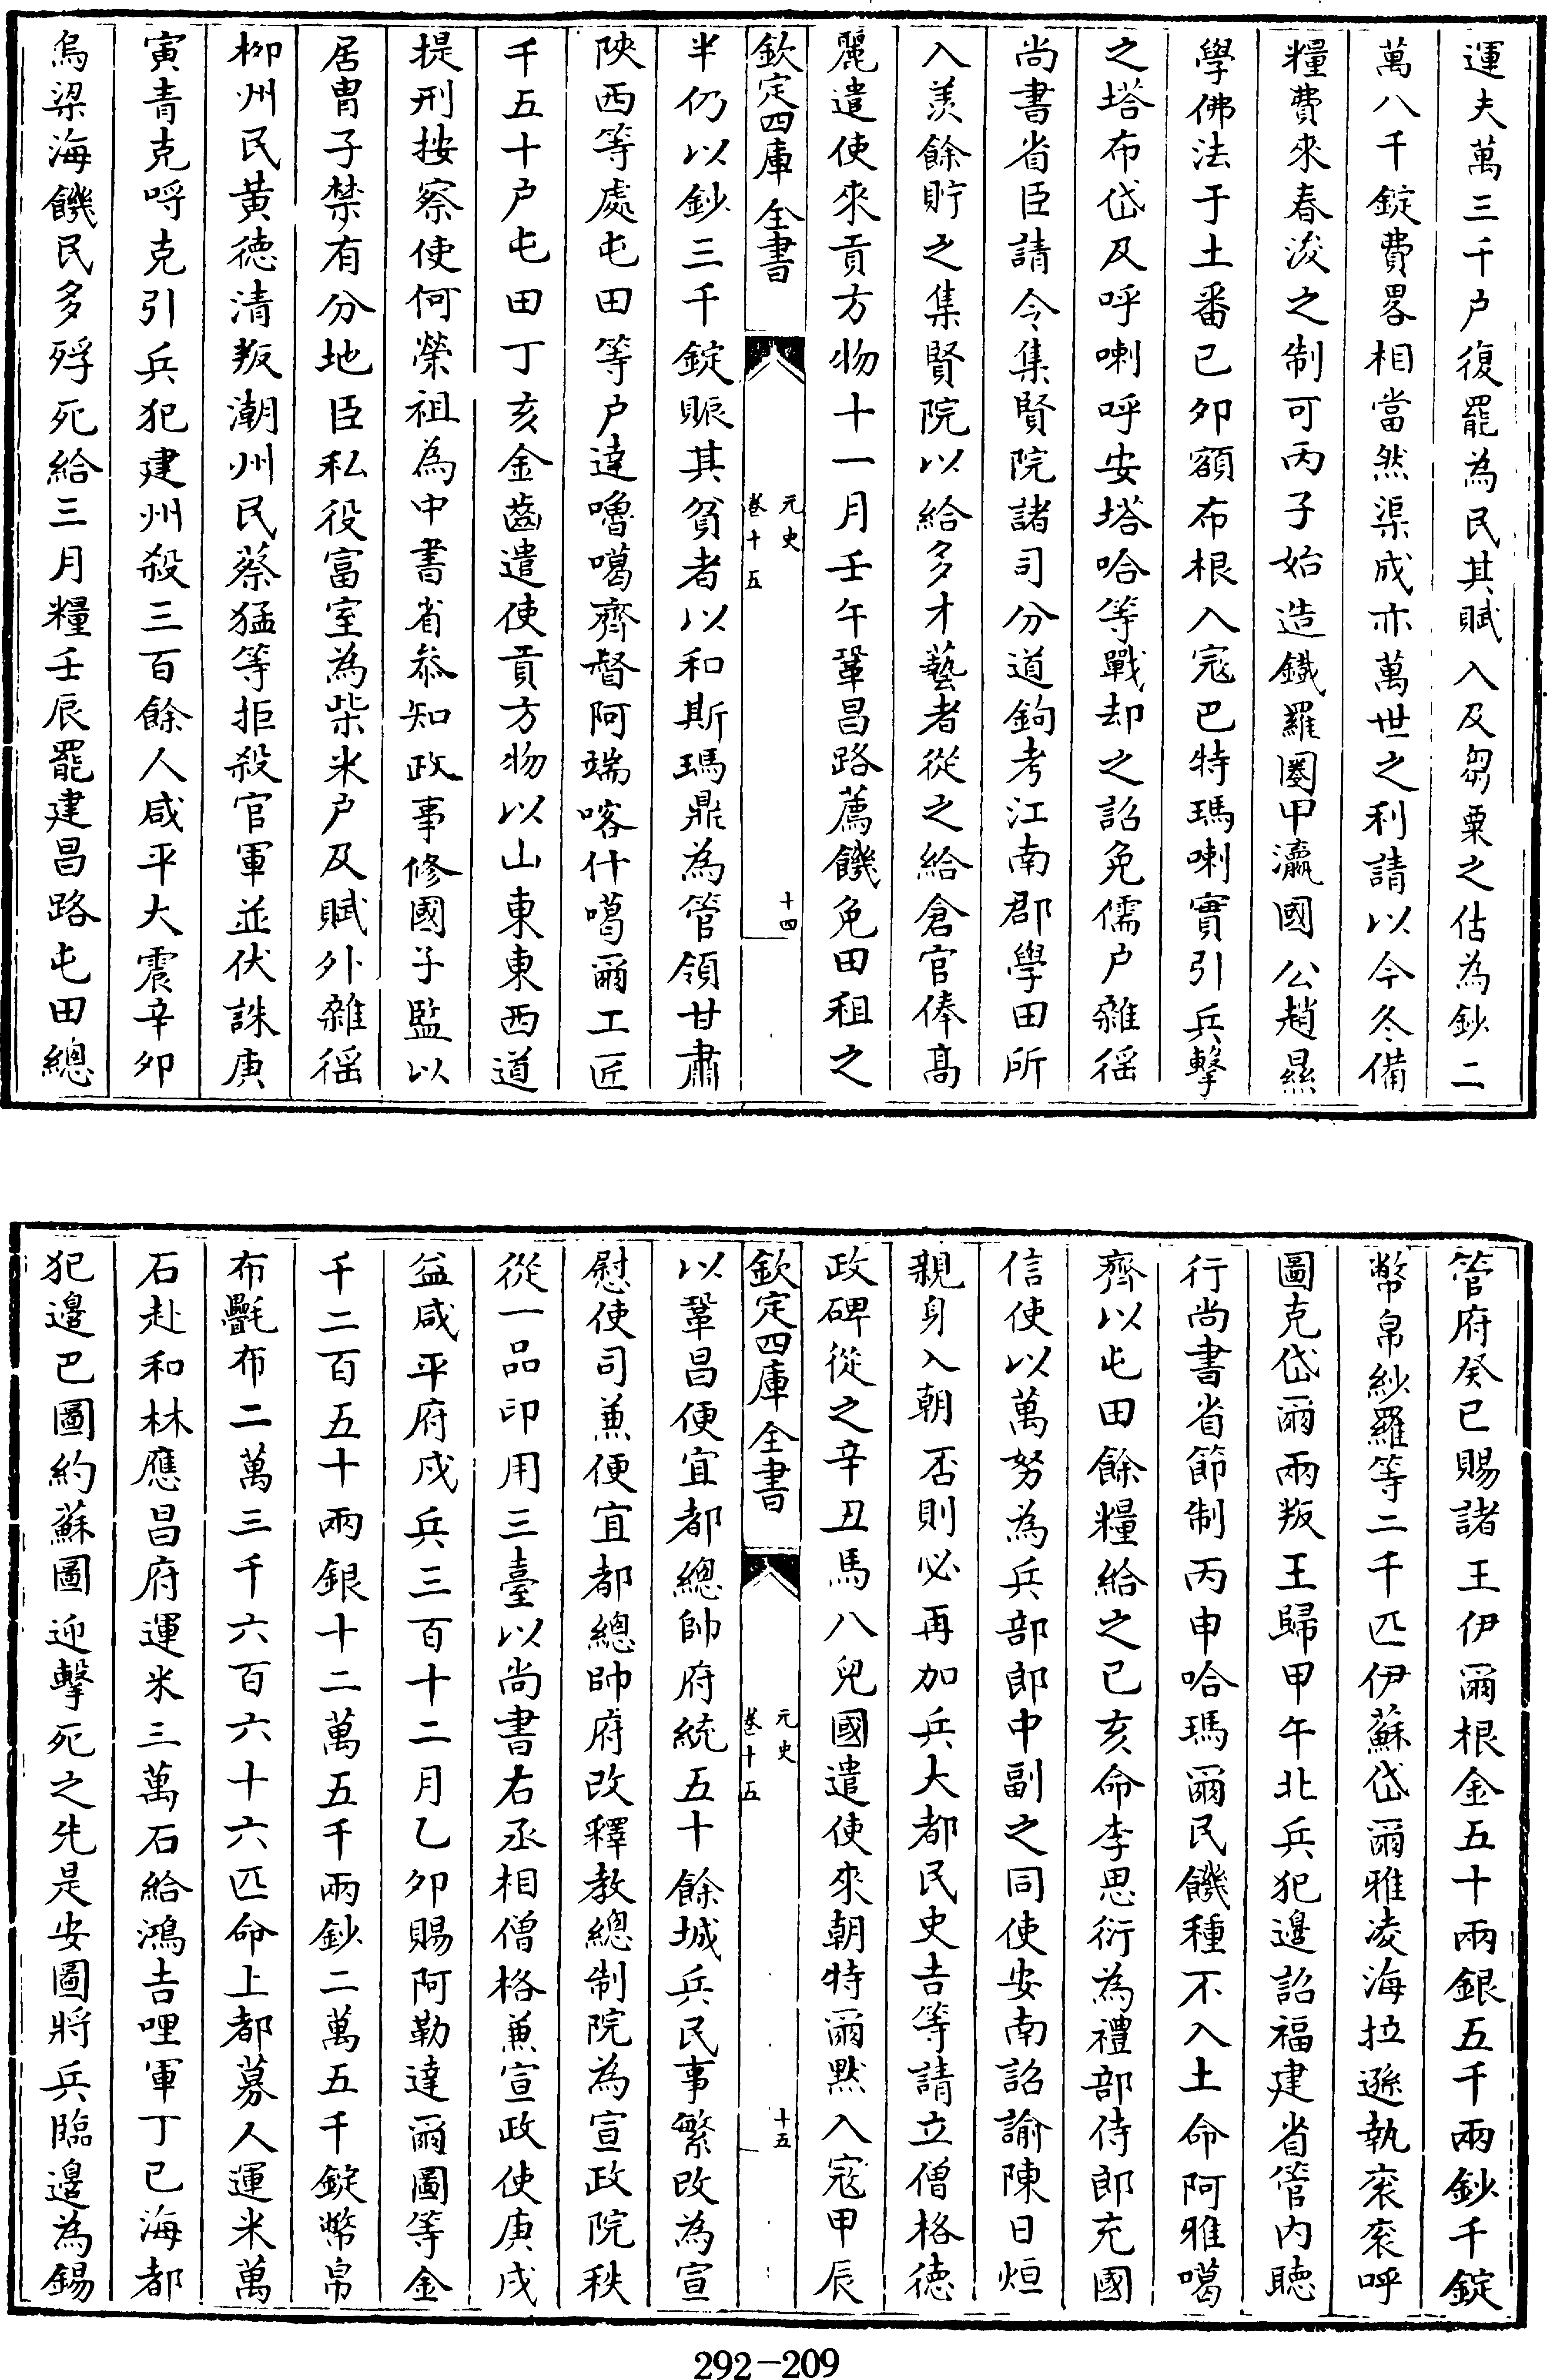 運夫萬三千户復罷為民其賦入及芻粟之估為鈔二
萬八千錠費畧相當然渠成亦萬世之利請以今冬備
糧費來春浚之制可丙子始造鐵羅圈甲瀛國公趙㬎
學佛法于土番已夘額布根入寇巴特瑪喇實引兵擊
之塔布岱及呼喇呼安塔哈等戰却之詔免儒户雜徭
尚書省臣請令集賢院諸司分道鉤考江南郡學田所
入羡餘貯之集賢院以給多才藝者從之給倉官俸髙
麗遣使來貢方物十一月壬午鞏昌路薦饑免田租之
欽定四庫全書
元史
卷十五
十四
半仍以鈔三千錠賑其貧者以和斯瑪鼎為管領甘肅
陜西等處屯田等户達嚕噶齊督阿端喀什噶爾工匠
千五十户屯田丁亥金齒遣使貢方物以山東東西道
提刑按察使何榮祖為中書省叅知政事修國子監以
居胄子禁有分地臣私役富室為柴米户及賦外雜徭
栁州民黄徳清叛潮州民蔡猛等拒殺官軍並伏誅庚
寅青克哷克引兵犯建州殺三百餘人咸平大震辛夘
烏梁海饑民多殍死給三月糧壬辰罷建昌路屯田總
管府癸巳賜諸王伊爾根金五十兩銀五千兩鈔千錠
幣帛紗羅等二千匹伊蘇岱爾雅凌海拉遜執衮衮呼
圖克岱爾兩叛王歸甲午北兵犯邊詔福建省管内聽
行尚書省節制丙申哈瑪爾民饑種不入土命阿雅噶
齊以屯田餘糧給之已亥命李思衍為禮部侍郎充國
信使以萬努為兵部郎中副之同使安南詔諭陳日烜
親身入朝否則必再加兵大都民史吉等請立僧格徳
政碑從之辛丑馬八兒國遣使來朝特爾黙入寇甲辰
欽定四庫全書
元史
卷十五
十五
以鞏昌便宜都總帥府統五十餘城兵民事繁改為宣
慰使司兼便宜都總帥府改釋教總制院為宣政院秩
從一品印用三臺以尚書右丞相僧格兼宣政使庚戌
益咸平府戍兵三百十二月乙夘賜阿勒達爾圖等金
千二百五十兩銀十二萬五千兩鈔二萬五千錠幣帛
布氎布二萬三千六百六十六匹命上都募人運米萬
石赴和林應昌府運米三萬石給鴻吉哩軍丁巳海都
犯邊巴圖約蘇圖迎擊死之先是安圖將兵臨邊為錫
292-209